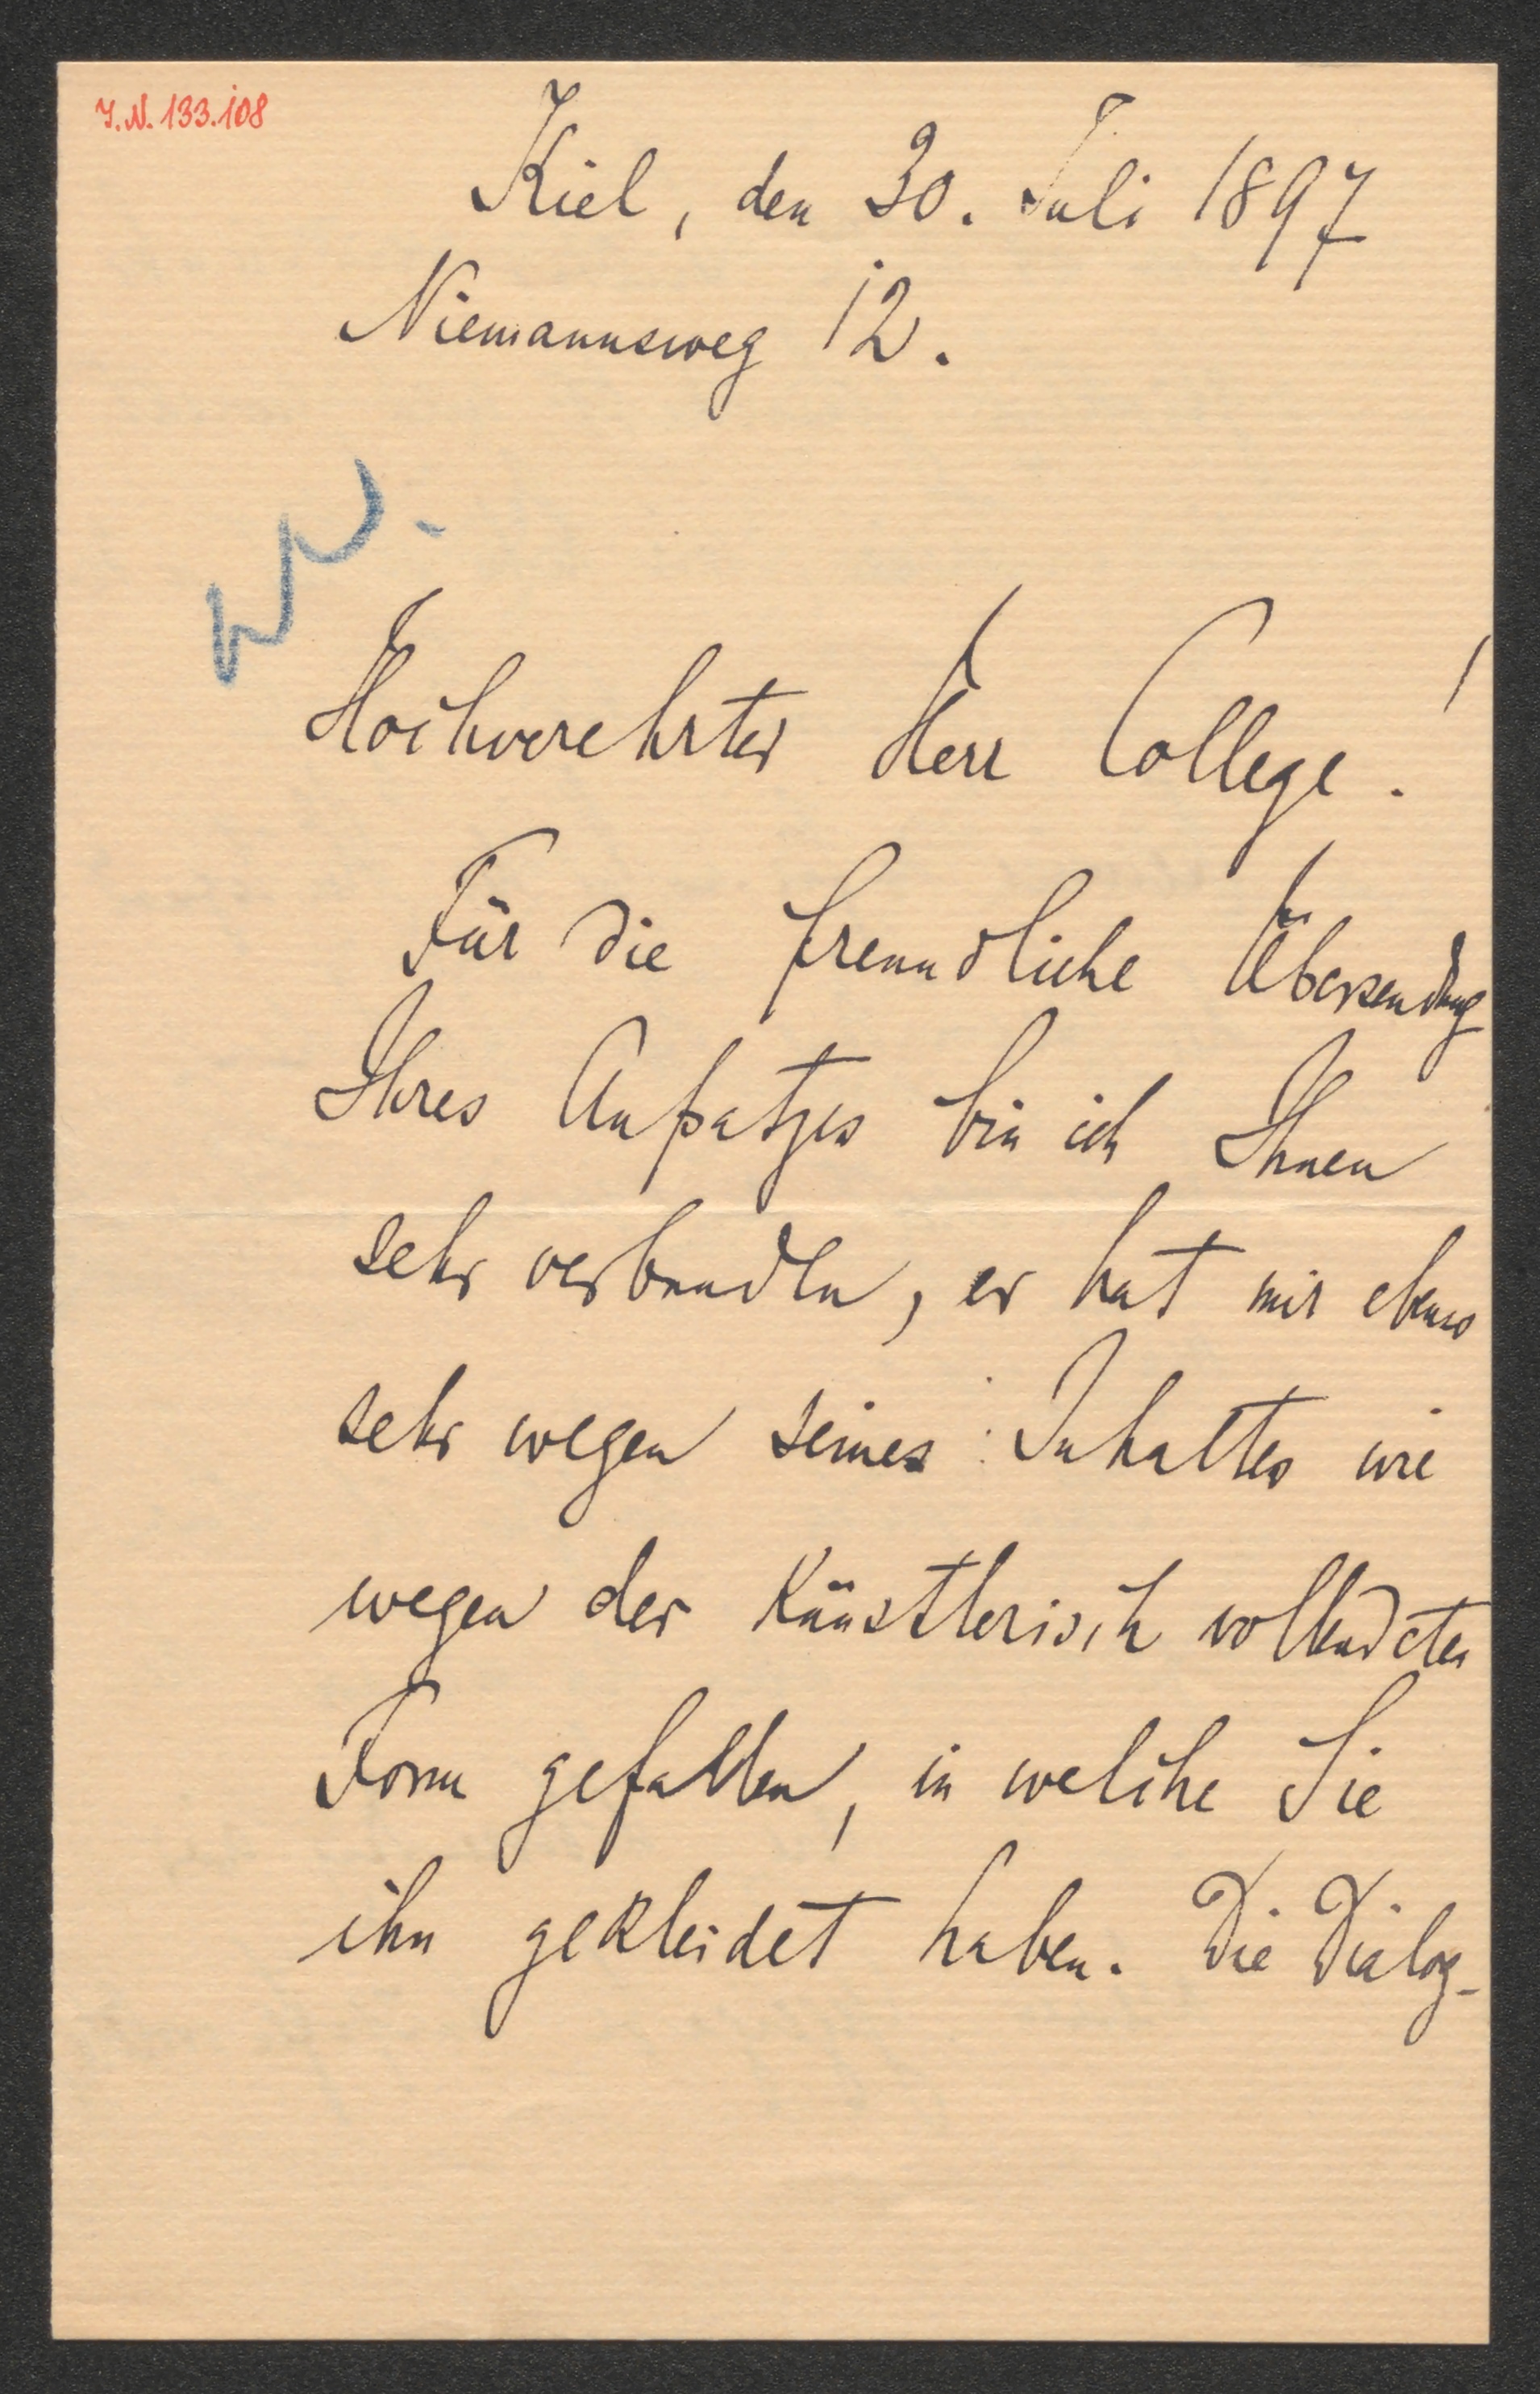 I.N. 133.108
Kiel, den 30. Juli 1897
Niemannsweg 12.
W.
Hochverehrter Herr College!
Für die freundliche Übersendung
Ihres Aufsatzes bin ich Ihnen
sehr verbunden, er hat mir ebenso
sehr wegen seines Inhaltes wie
wegen der künstlerisch vollendeten
Form gefallen, in welche Sie
ihn gekleidet haben. Die Dialog-